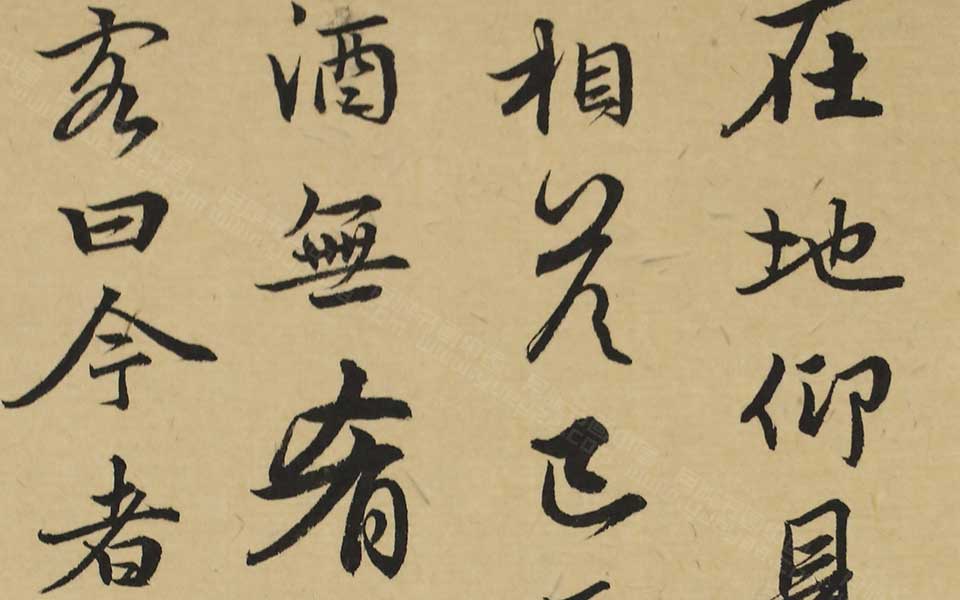 在地仰見
相答已
酒無肴
客曰今者